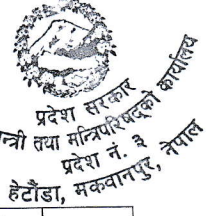 प्रदेश सरकार
न्त्री तथा मन्त्रिपरिषद्को कार्यालय
प्रदेश नं. ३
हेटौंडा, मकवानपुर, नेपाल